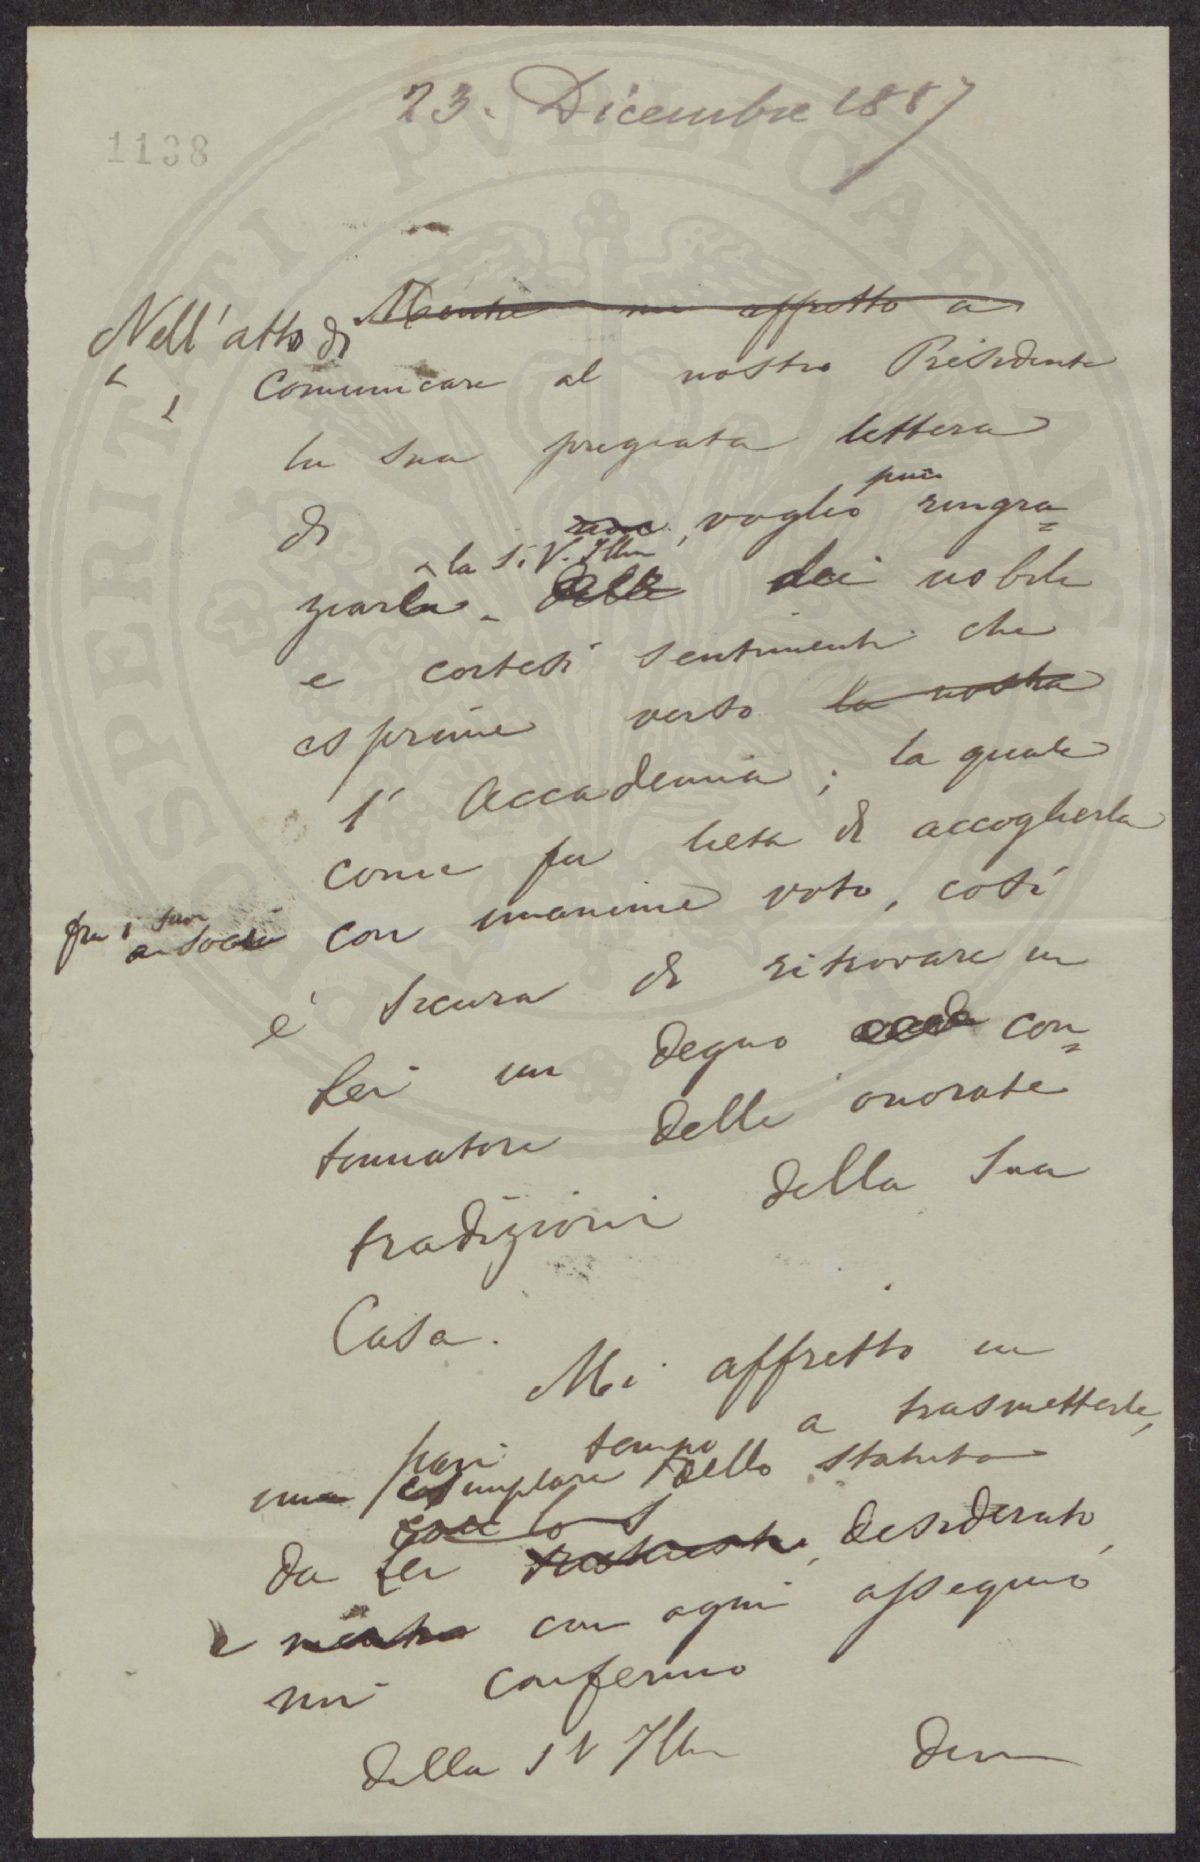 23. Dicembre 1887
1138
Nell'atto di Mentre mi affretto a
comunicare al nostro Presidente
la sua pregiata lettera
di voglio pure ringra=
ziarla la S. V. Illm delle dei nobili
e cortesi sentimenti che
esprime verso la nostra
l'Accademia; la quale
come fu lieta di accoglierla
fra i suoi associati con unanime voto, così
è sicura di ritrovare in
Lei un degno con=
tinuatore delle onorate
tradizioni della Sua
Casa.
Mi affretto in
pari tempo a trasmetterle,
un esemplare dello statuto
da Lei desiderato,
e mentre con ogni assequio
mi confermo
della S V Illm dev